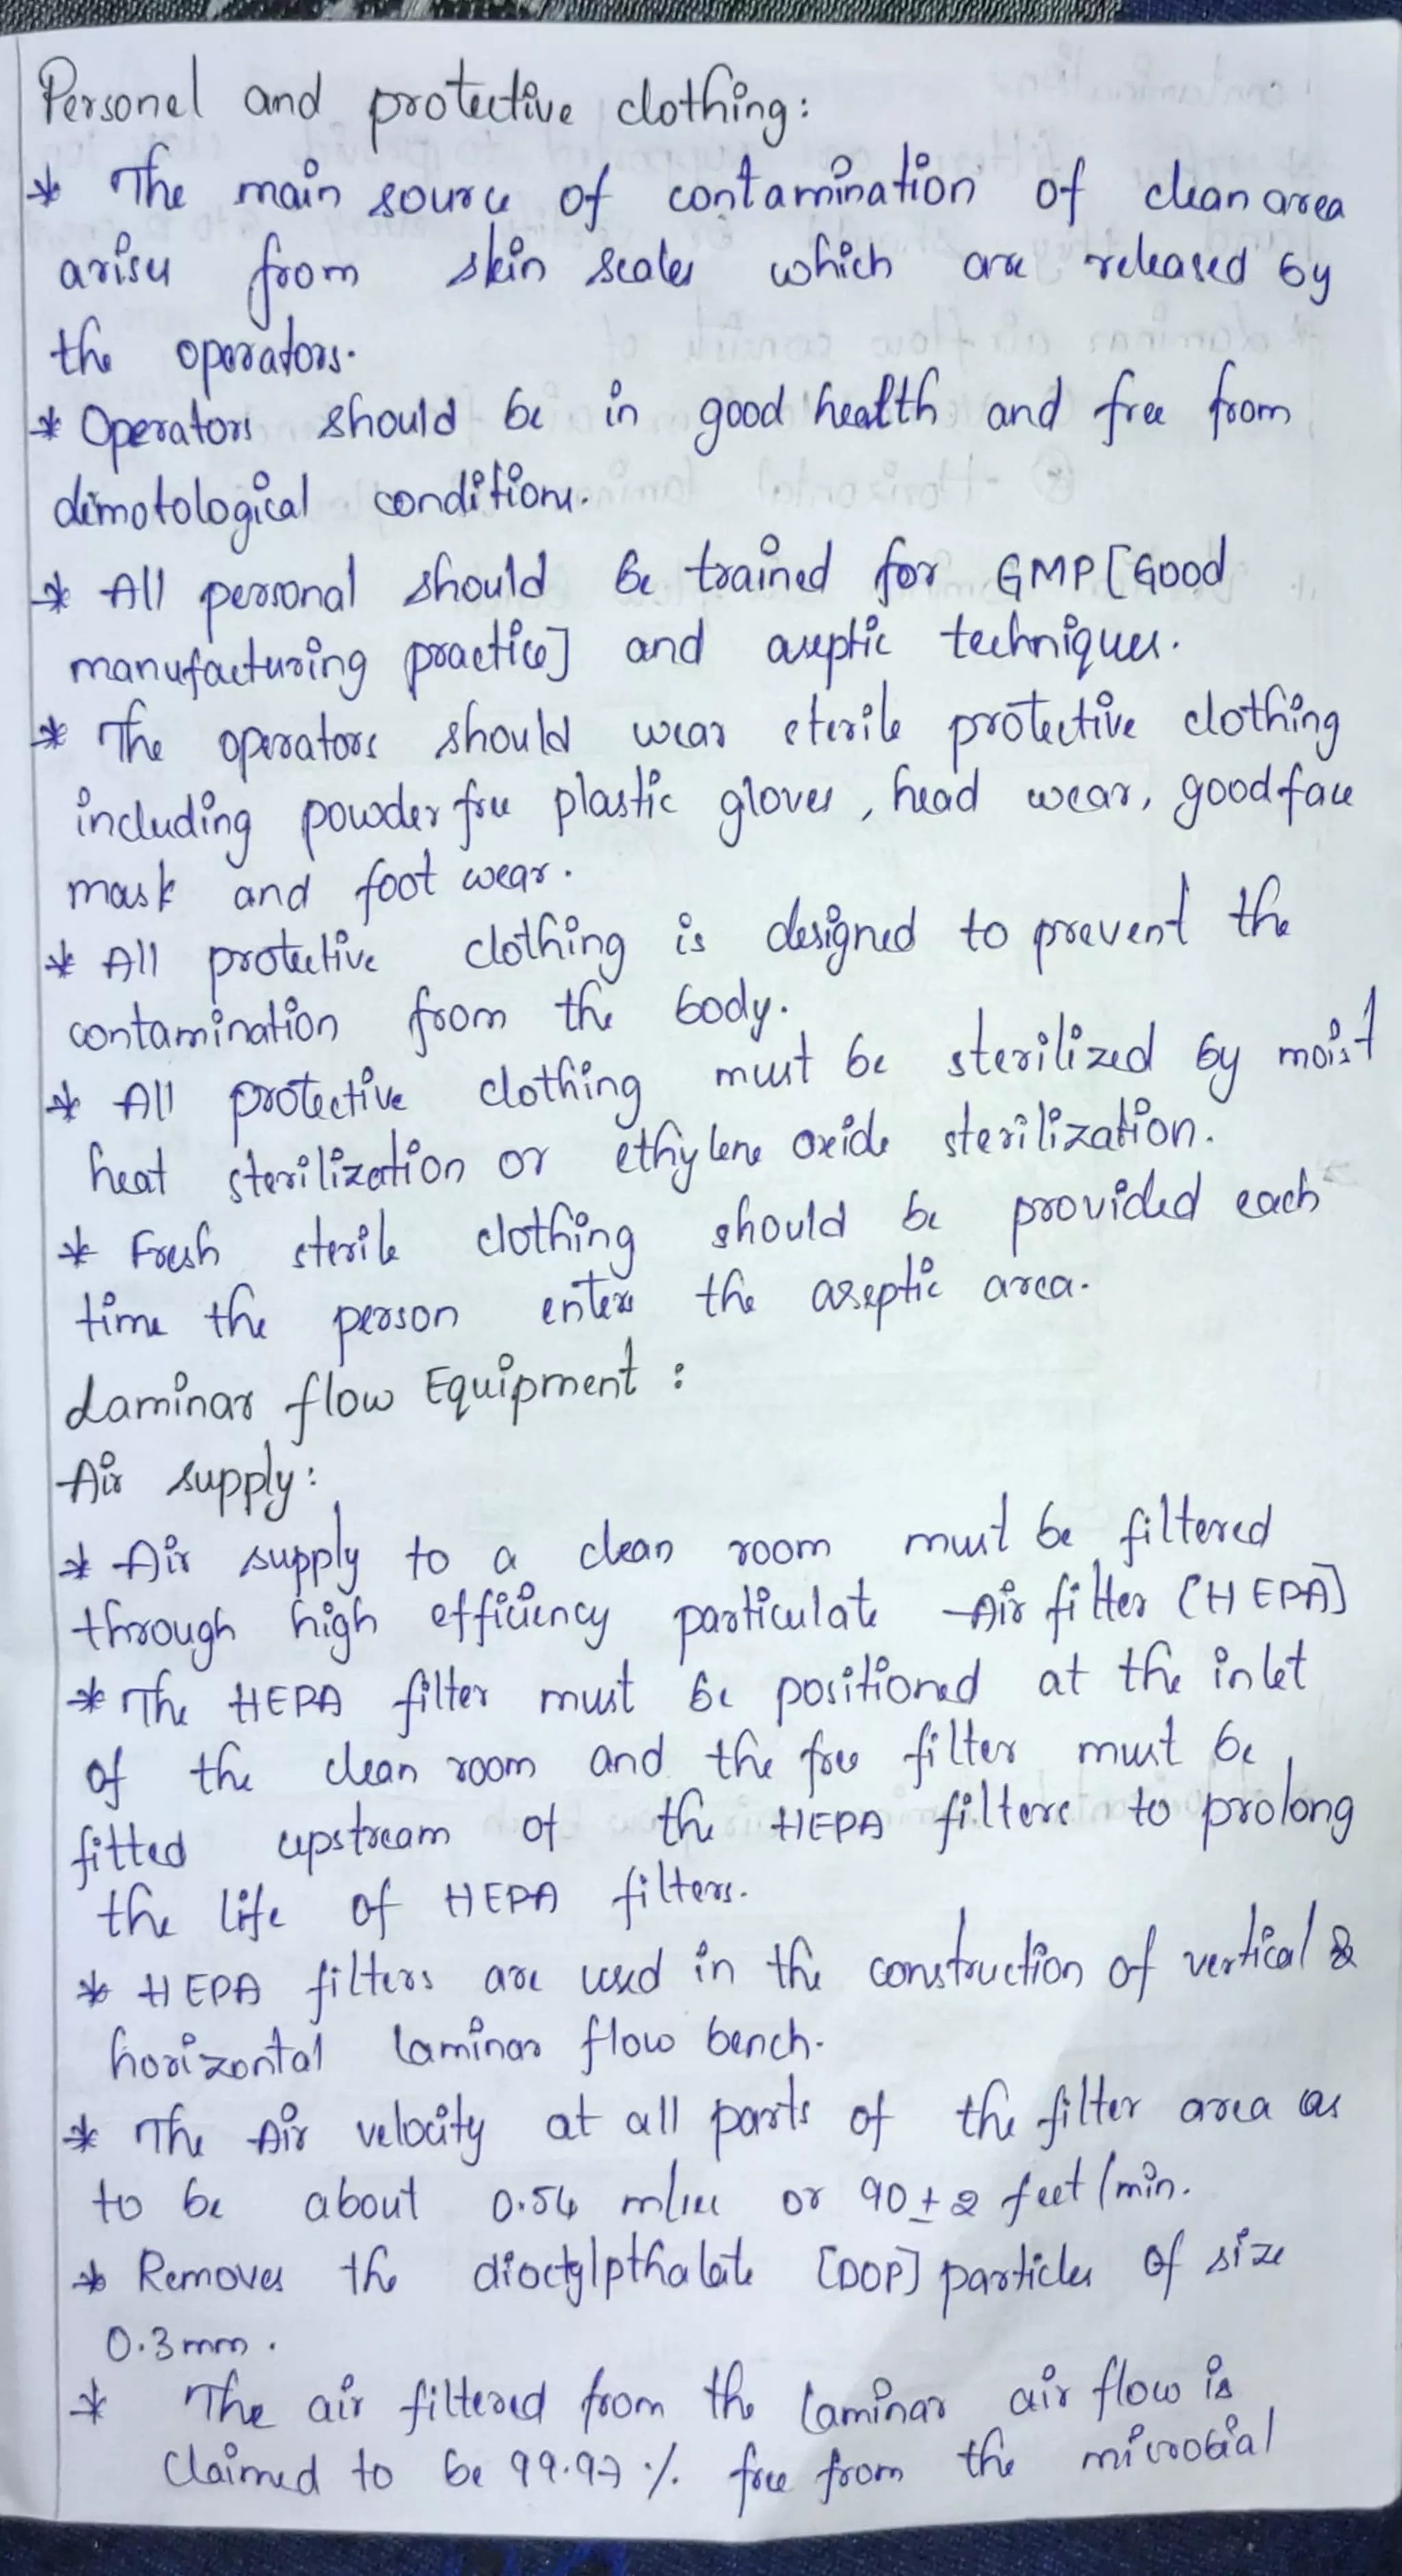 Personel and protective clothing:
* The main source of contamination of clean area
arises from skin scales which are released by
the operators.
* Operators should be in good health and free from
dimotological conditions.
* All personal should be trained for GMP [Good
manufacturing practice] and aseptic techniques.
* The operators should wear sterile protective clothing
including powder free plastic gloves, head wear, good face
mask and foot wear.
* All protective clothing is designed to prevent the
contamination from the body.
* All protective clothing must be sterilized by moist
heat sterilization or ethylene oxide sterilization.
* Fresh sterile clothing should be provided each
time the person enters the aseptic area.
Laminar flow Equipment:
Air supply:
* Air supply to a clean room must be filtered
through high efficiency particulate Air filter [HEPA]
* The HEPA filter must be positioned at the inlet
of the clean room and the free filter must be
fitted upstream of the HEPA filters to prolong
the life of HEPA filters.
* HEPA filters are used in the construction of vertical &
horizontal laminar flow bench.
* The Air velocity at all parts of the filter area as
to be about 0.54 m/sec or 90±2 feet/min.
* Removes the dioctylpthalate [DOP] particles of size
0.3mm.
* The air filtered from the laminar air flow is
claimed to be 99.97% free from the microbial